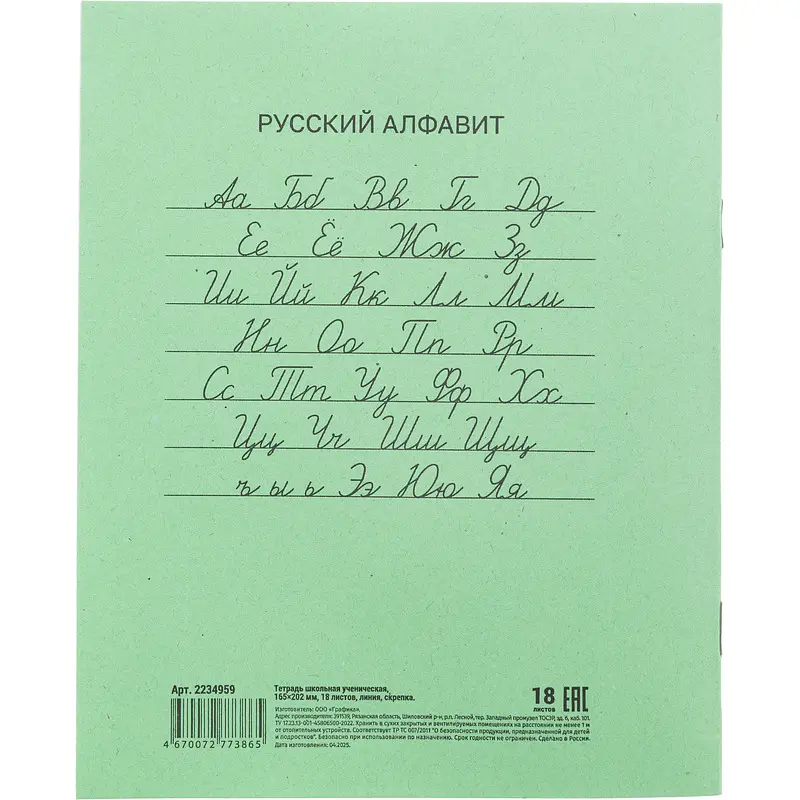 РУССКИЙ АЛФАВИТ
Аа Бб Вв Гг Дд
Ее Ёё Жж Зз
Ии Йй Кк Лл Мм
Нн Оо Пп Рр
Сс Тт Уу Фф Хх
Цц Чч Шш Щщ
ъ ы ь Ээ Юю Яя
Арт. 2234959
4 670072 773865
Тетрадь школьная ученическая,
165×202 мм, 18 листов, линия, скрепка.
Изготовитель: ООО «Графика».
Адрес производителя: 391539, Рязанская область, Шиловский р-н, р.п. Лесной, тер. Западный промузел ТОСЭР, зд. 6, каб. 101.
ТУ 17.23.13-001-45806500-2022. Хранить в сухих закрытых и вентилируемых помещениях на расстоянии не менее 1 м
от отопительных устройств. Соответствует ТР ТС 007/2011 "О безопасности продукции, предназначенной для детей
и подростков". Безопасно при использовании по назначению. Срок годности не ограничен. Сделано в России.
Дата изготовления: 04.2025.
18
листов
EAC